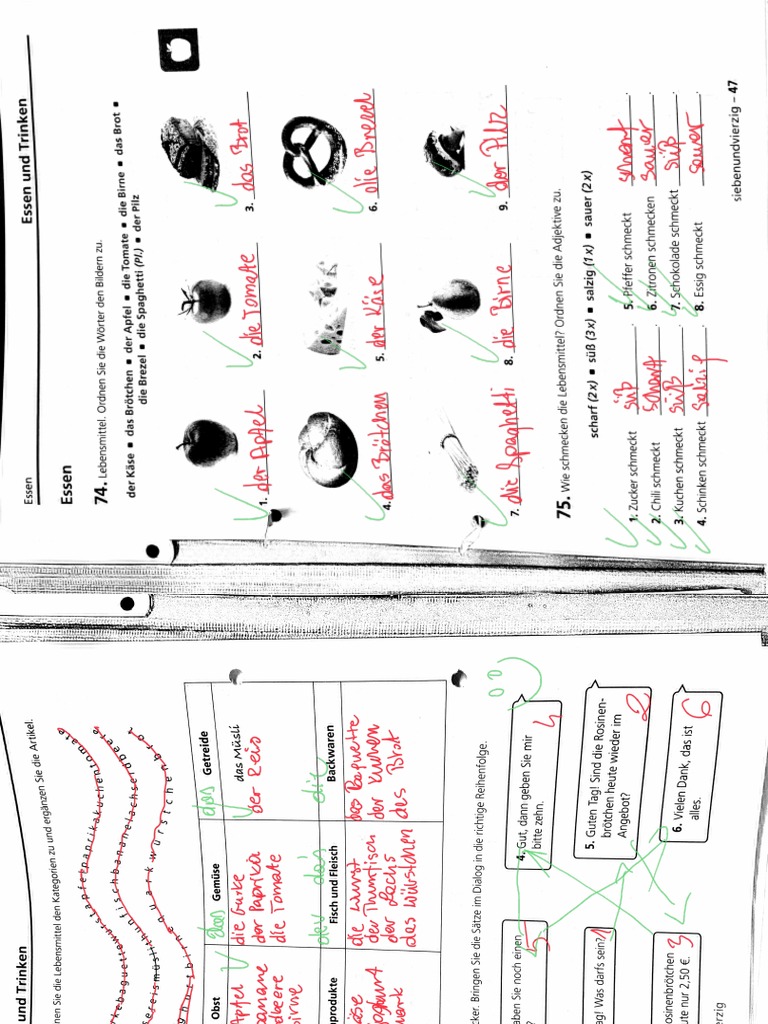 Essen
Essen und Trinken
Essen
74. Lebensmittel. Ordnen Sie die Wörter den Bildern zu.
der Käse ■ das Brötchen ■ der Apfel ■ die Tomate ■ die Birne ■ das Brot ■
die Brezel ■ die Spaghetti (Pl.) ■ der Pilz
1. der Apfel
2. die Tomate
3. das Brot
4. das Brötchen
5. der Käse
6. die Brezel
7. die Spaghetti
8. die Birne
9. der Pilz
75. Wie schmecken die Lebensmittel? Ordnen Sie die Adjektive zu.
scharf (2x) ■ süß (3x) ■ salzig (1x) ■ sauer (2x)
1. Zucker schmeckt süß.
2. Chili schmeckt scharf.
3. Kuchen schmeckt süß.
4. Schinken schmeckt salzig.
5. Pfeffer schmeckt scharf.
6. Zitronen schmecken sauer.
7. Schokolade schmeckt süß.
8. Essig schmeckt sauer.
siebenundvierzig – 47
und Trinken
nen Sie die Lebensmittel den Kategorien zu und ergänzen Sie die Artikel.
rkebaguettewurstapfelpaprikakuchentomate
ereismüslithunfischbananelachserdbeere
ghurtbirnequarkwürstchenbrot
Obst
das Gemüse
das Getreide
Apfel
banane
dbeere
birne
die Gurke
der Paprika
die Tomate
das Müsli
der Reis
produkte
der das Fisch und Fleisch
die Backwaren
Käse
Joghurt
uark
die Wurst
der Thunfisch
der Lachs
das Würstchen
das Baguette
der Kuchen
das Brot
cker. Bringen Sie die Sätze im Dialog in die richtige Reihenfolge.
aben Sie noch einen 5
ag! Was darfs sein? 1
osinenbrötchen
ute nur 2,50 €. 3
4. Gut, dann geben Sie mir
bitte zehn. 4
5. Guten Tag! Sind die Rosinen-
brötchen heute wieder im
Angebot? 2
6. Vielen Dank, das ist
alles. 6
erzig